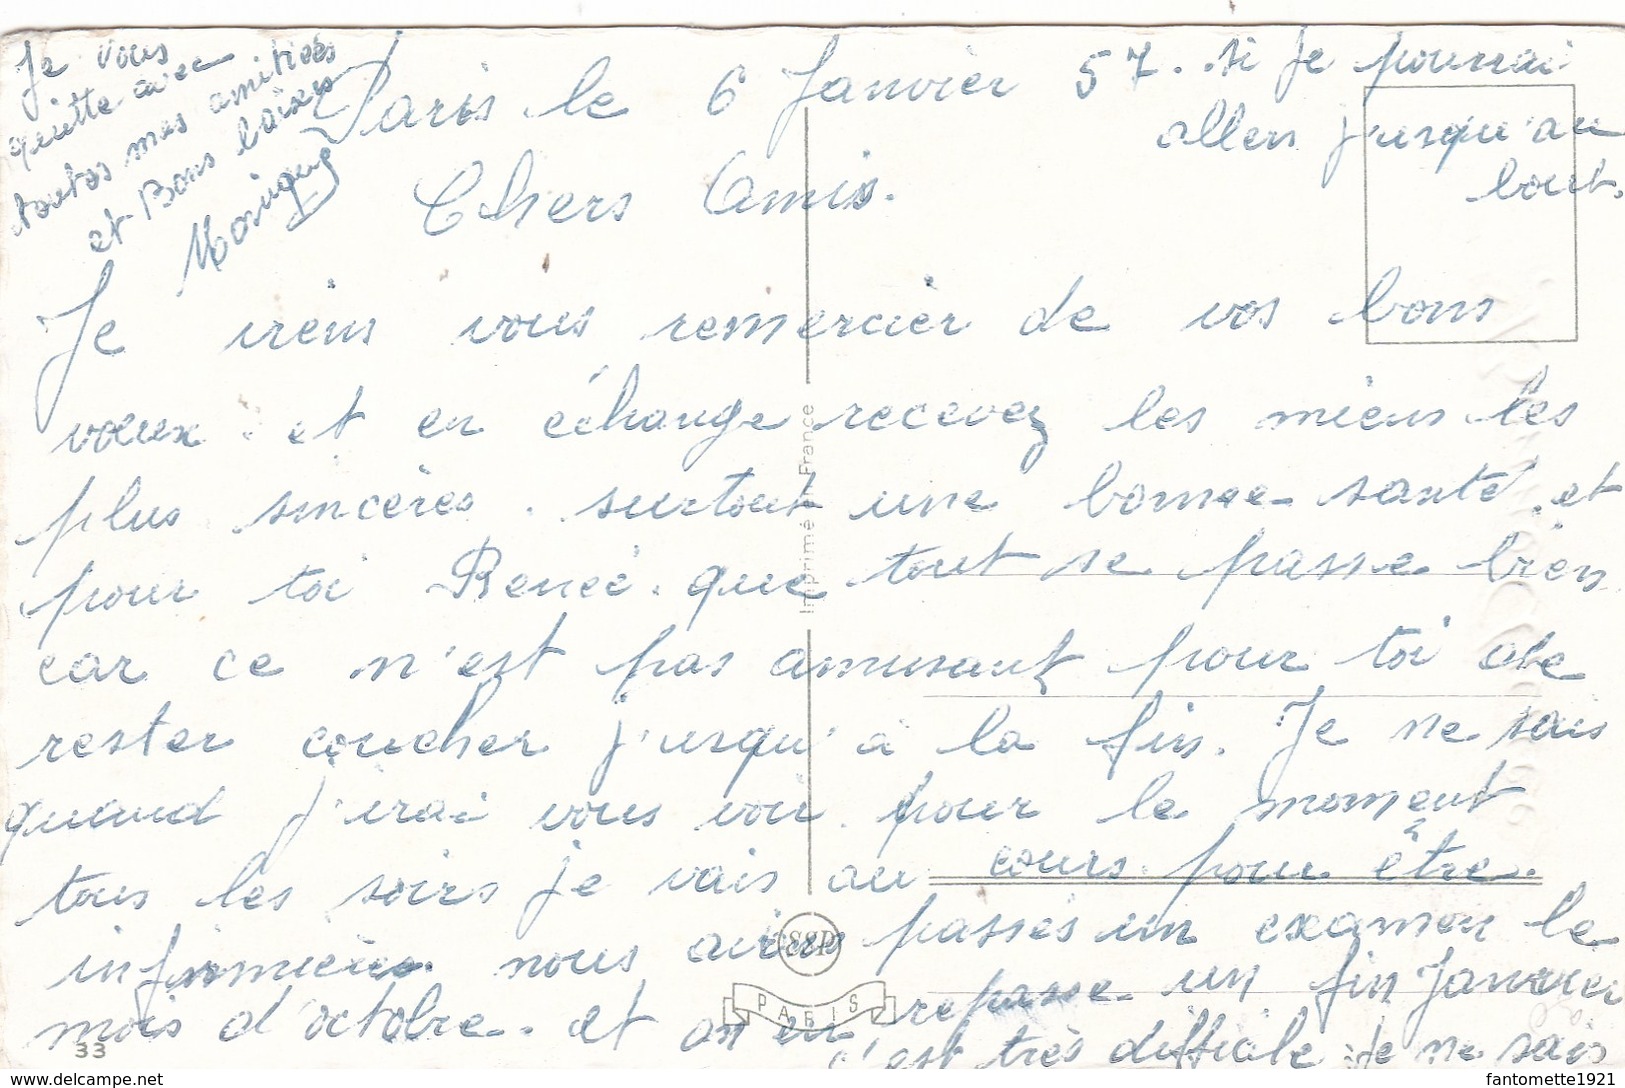 Paris le 6 Janvier 57.
Chers Amis.
Je viens vous remercier de vos bons
voeux. et en échange recevez les miens les
plus sincères. surtout une bonne santé. et
pour toi Renée. que tout se passe bien
car ce n'est pas amusant pour toi de
rester coucher jusqu'à la fin. Je ne sais
quand j'irai vous voir. pour le moment
tous les soirs je vais au cours. pour être.
infirmière. nous avions passés un examen le
mois d'octobre. et on en repasse un fin Janvier
c'est très difficile. Je ne sais
si je pourrai
allers jusqu'au
bout.
Je vous
quitte avec
toutes mes amitiées
et Bons baisers
Imprimé en France
SSP
PARIS
33
fantomette1921